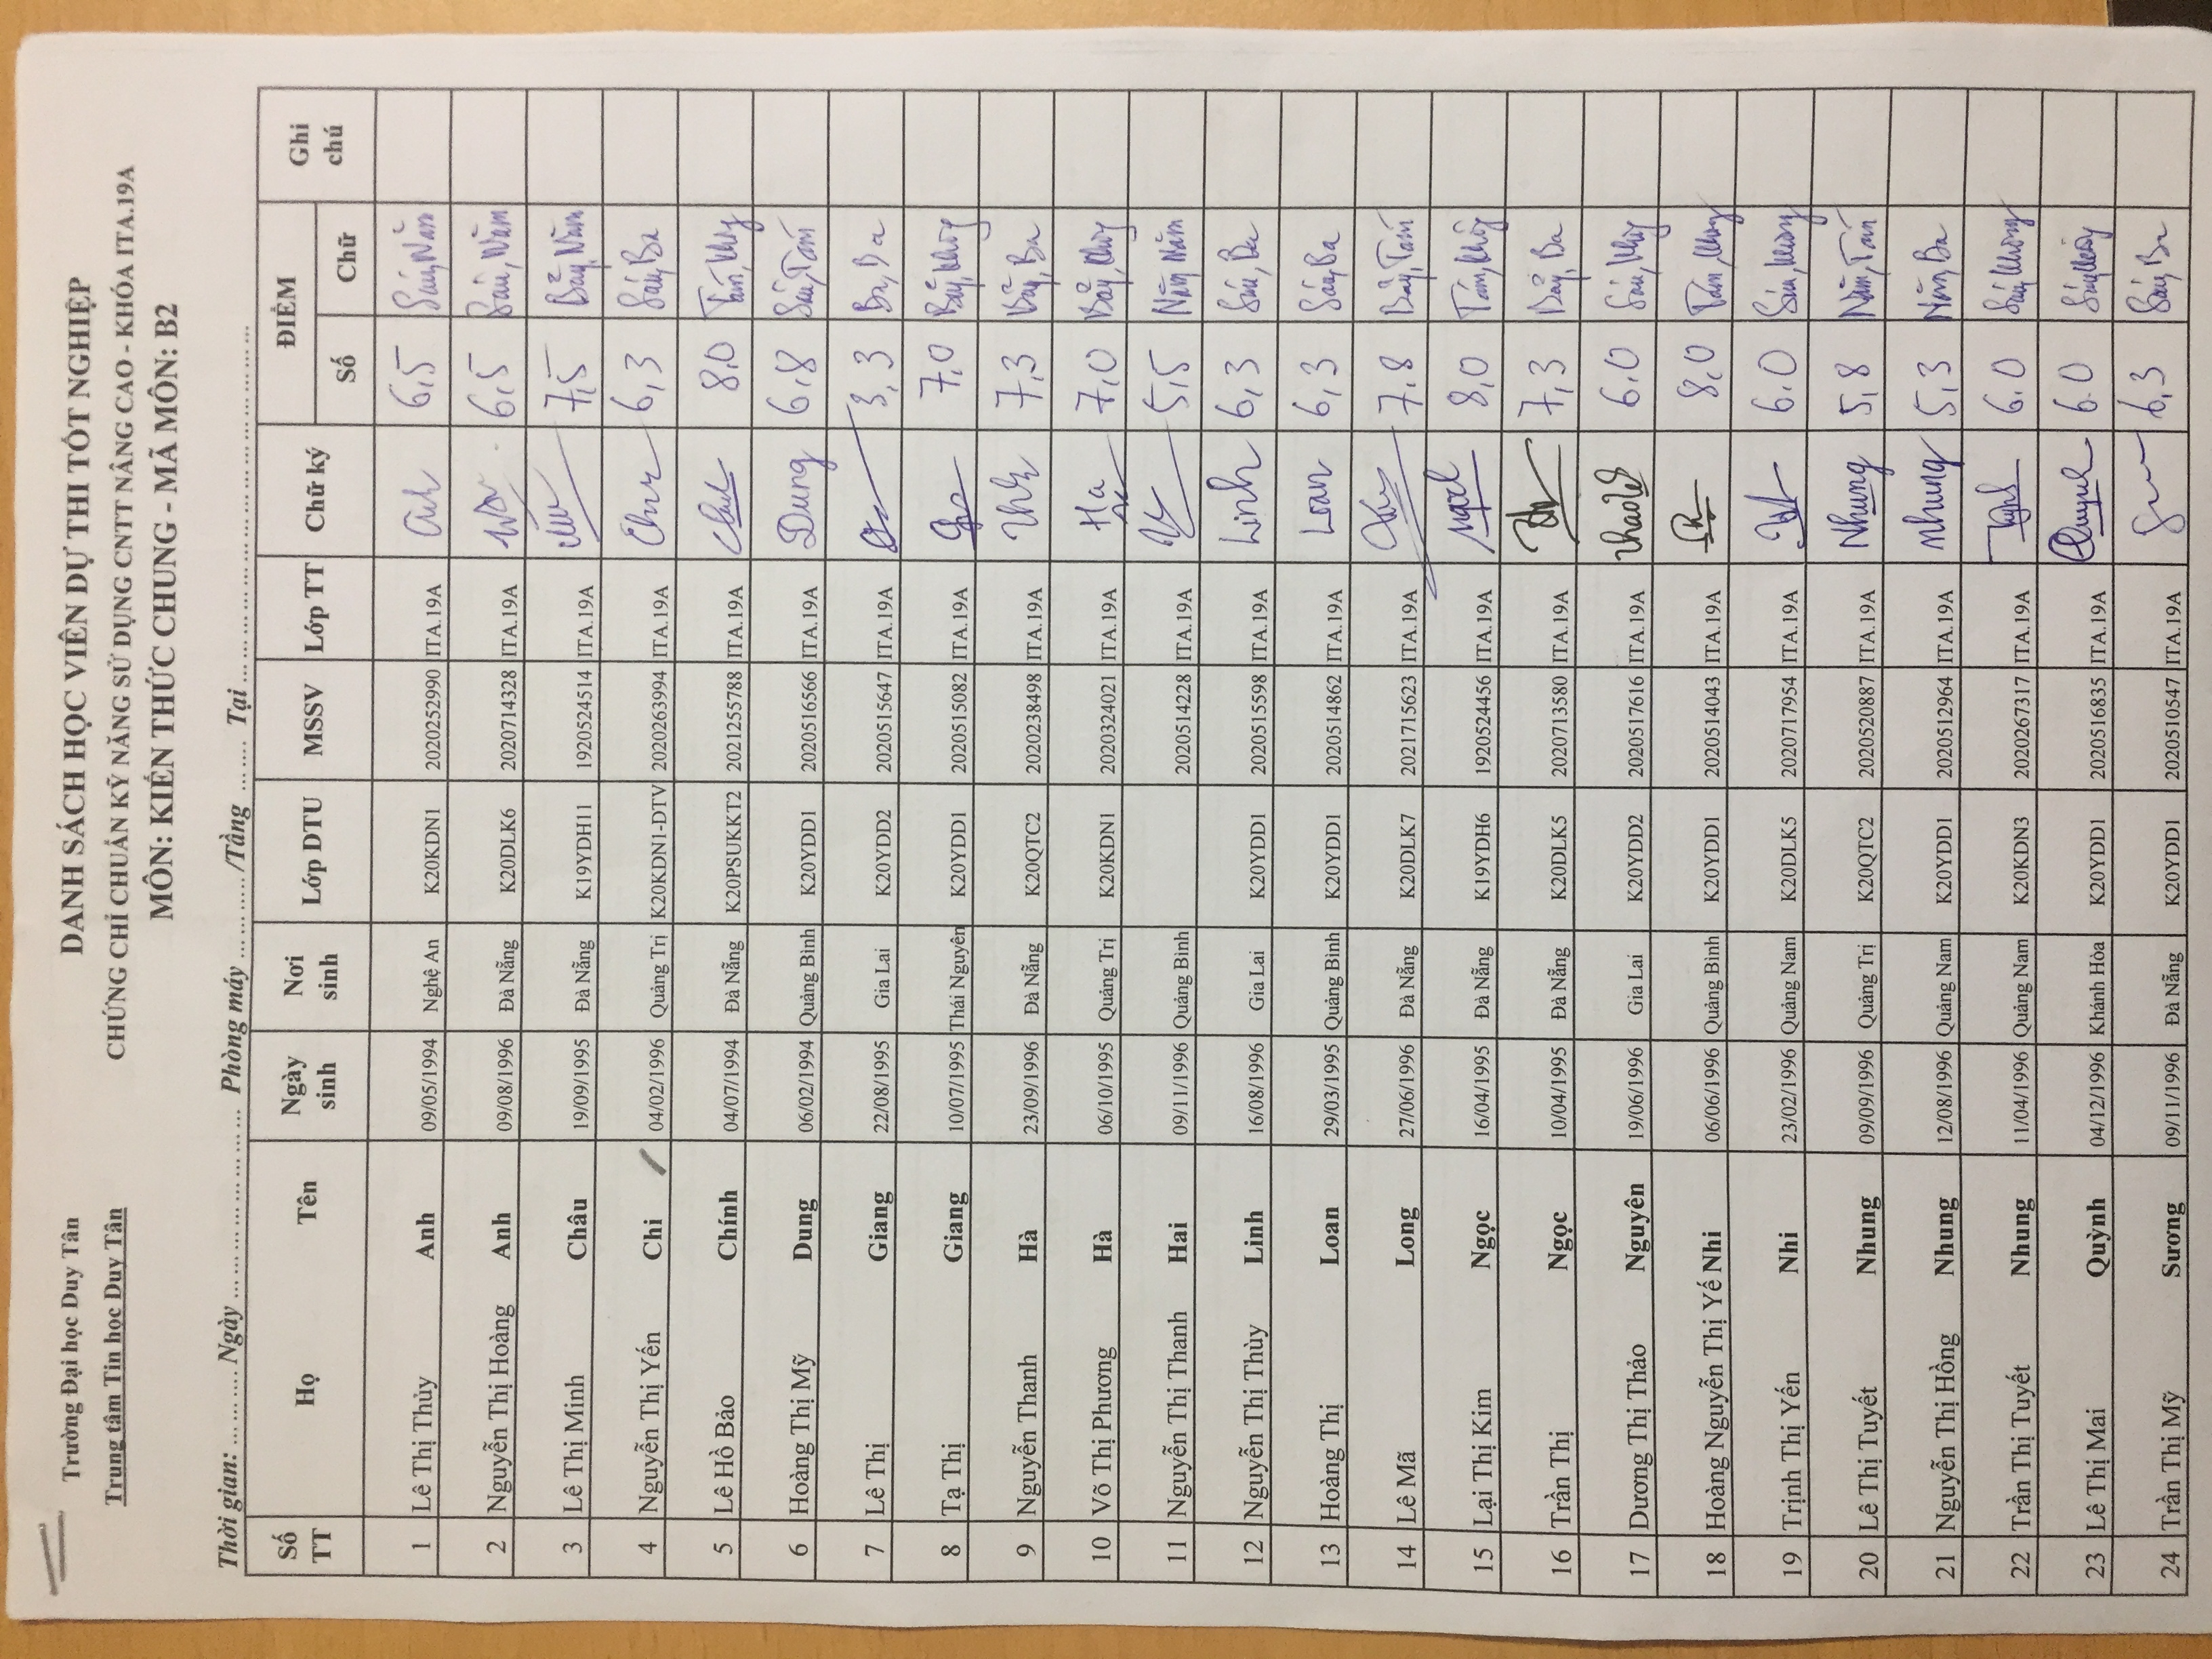 Trường Đại học Duy Tân
Trung tâm Tin học Duy Tân
DANH SÁCH HỌC VIÊN DỰ THI TỐT NGHIỆP
CHỨNG CHỈ CHUẨN KỸ NĂNG SỬ DỤNG CNTT NÂNG CAO - KHÓA ITA.19A
MÔN: KIẾN THỨC CHUNG - MÃ MÔN: B2
Thời gian: ... ... .... Ngày ... ... ... ... ... ... ... Phòng máy ... ... ... .../Tầng ... ... ... Tại ... ... ... ... ... ... ... ... ... ... ...
Số TT Họ Tên Ngày sinh Nơi sinh Lớp DTU MSSV Lớp TT Chữ ký ĐIỂM Ghi chú
Số Chữ
1 Lê Thị Thủy Anh 09/05/1994 Nghệ An K20KDN1 2020252990 ITA.19A Anh 6,5 Sáu, Năm
2 Nguyễn Thị Hoàng Anh 09/08/1996 Đà Nẵng K20DLK6 2020714328 ITA.19A 6,5 Sáu, Năm
3 Lê Thị Minh Châu 19/09/1995 Đà Nẵng K19YDH11 1920524514 ITA.19A 7,5 Bảy, Năm
4 Nguyễn Thị Yến Chi 04/02/1996 Quảng Trị K20KDN1-DTV 2020263994 ITA.19A 6,3 Sáu, Ba
5 Lê Hồ Bảo Chính 04/07/1994 Đà Nẵng K20PSUKKT2 2021255788 ITA.19A 8,0 Tám, Không
6 Hoàng Thị Mỹ Dung 06/02/1994 Quảng Bình K20YDD1 2020516566 ITA.19A Dung 6,8 Sáu, Tám
7 Lê Thị Giang 22/08/1995 Gia Lai K20YDD2 2020515647 ITA.19A 3,3 Ba, Ba
8 Tạ Thị Giang 10/07/1995 Thái Nguyên K20YDD1 2020515082 ITA.19A 7,0 Bảy, Không
9 Nguyễn Thanh Hà 23/09/1996 Đà Nẵng K20QTC2 2020238498 ITA.19A 7,3 Bảy, Ba
10 Võ Thị Phương Hà 06/10/1995 Quảng Trị K20KDN1 2020324021 ITA.19A Ha 7,0 Bảy, Không
11 Nguyễn Thị Thanh Hai 09/11/1996 Quảng Bình 2020514228 ITA.19A 5,5 Năm, Năm
12 Nguyễn Thị Thùy Linh 16/08/1996 Gia Lai K20YDD1 2020515598 ITA.19A Linh 6,3 Sáu, Ba
13 Hoàng Thị Loan 29/03/1995 Quảng Bình K20YDD1 2020514862 ITA.19A Loan 6,3 Sáu, Ba
14 Lê Mã Long 27/06/1996 Đà Nẵng K20DLK7 2021715623 ITA.19A 7,8 Bảy, Tám
15 Lại Thị Kim Ngọc 16/04/1995 Đà Nẵng K19YDH6 1920524456 ITA.19A Ngọc 8,0 Tám, Không
16 Trần Thị Ngọc 10/04/1995 Đà Nẵng K20DLK5 2020713580 ITA.19A 7,3 Bảy, Ba
17 Dương Thị Thảo Nguyên 19/06/1996 Gia Lai K20YDD2 2020517616 ITA.19A 6.0 Sáu, Không
18 Hoàng Nguyễn Thị Yế Nhi 06/06/1996 Quảng Bình K20YDD1 2020514043 ITA.19A 8,0 Tám, Không
19 Trịnh Thị Yến Nhi 23/02/1996 Quảng Nam K20DLK5 2020717954 ITA.19A 6.0 Sáu, Không
20 Lê Thị Tuyết Nhung 09/09/1996 Quảng Trị K20QTC2 2020520887 ITA.19A Nhung 5,8 Năm, Tám
21 Nguyễn Thị Hồng Nhung 12/08/1996 Quảng Nam K20YDD1 2020512964 ITA.19A Nhung 5,3 Năm, Ba
22 Trần Thị Tuyết Nhung 11/04/1996 Quảng Nam K20KDN3 2020267317 ITA.19A 6.0 Sáu, Không
23 Lê Thị Mai Quỳnh 04/12/1996 Khánh Hòa K20YDD1 2020516835 ITA.19A Quỳnh 6.0 Sáu, Không
24 Trần Thị Mỹ Sương 09/11/1996 Đà Nẵng K20YDD1 2020510547 ITA.19A 6,3 Sáu, Ba